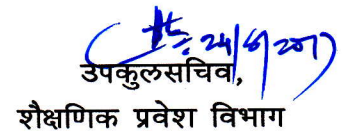 24/8/2017
उपकुलसचिव,
शैक्षणिक प्रवेश विभाग